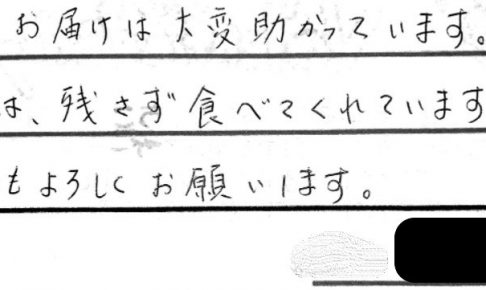 お届けは大変助かっています。
は、残さず食べてくれています
もよろしくお願いします。